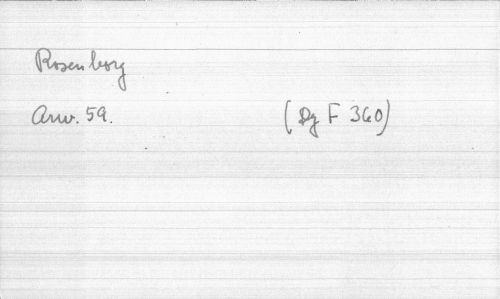 Rosenborg
Arw. 59. (Dg F 360)